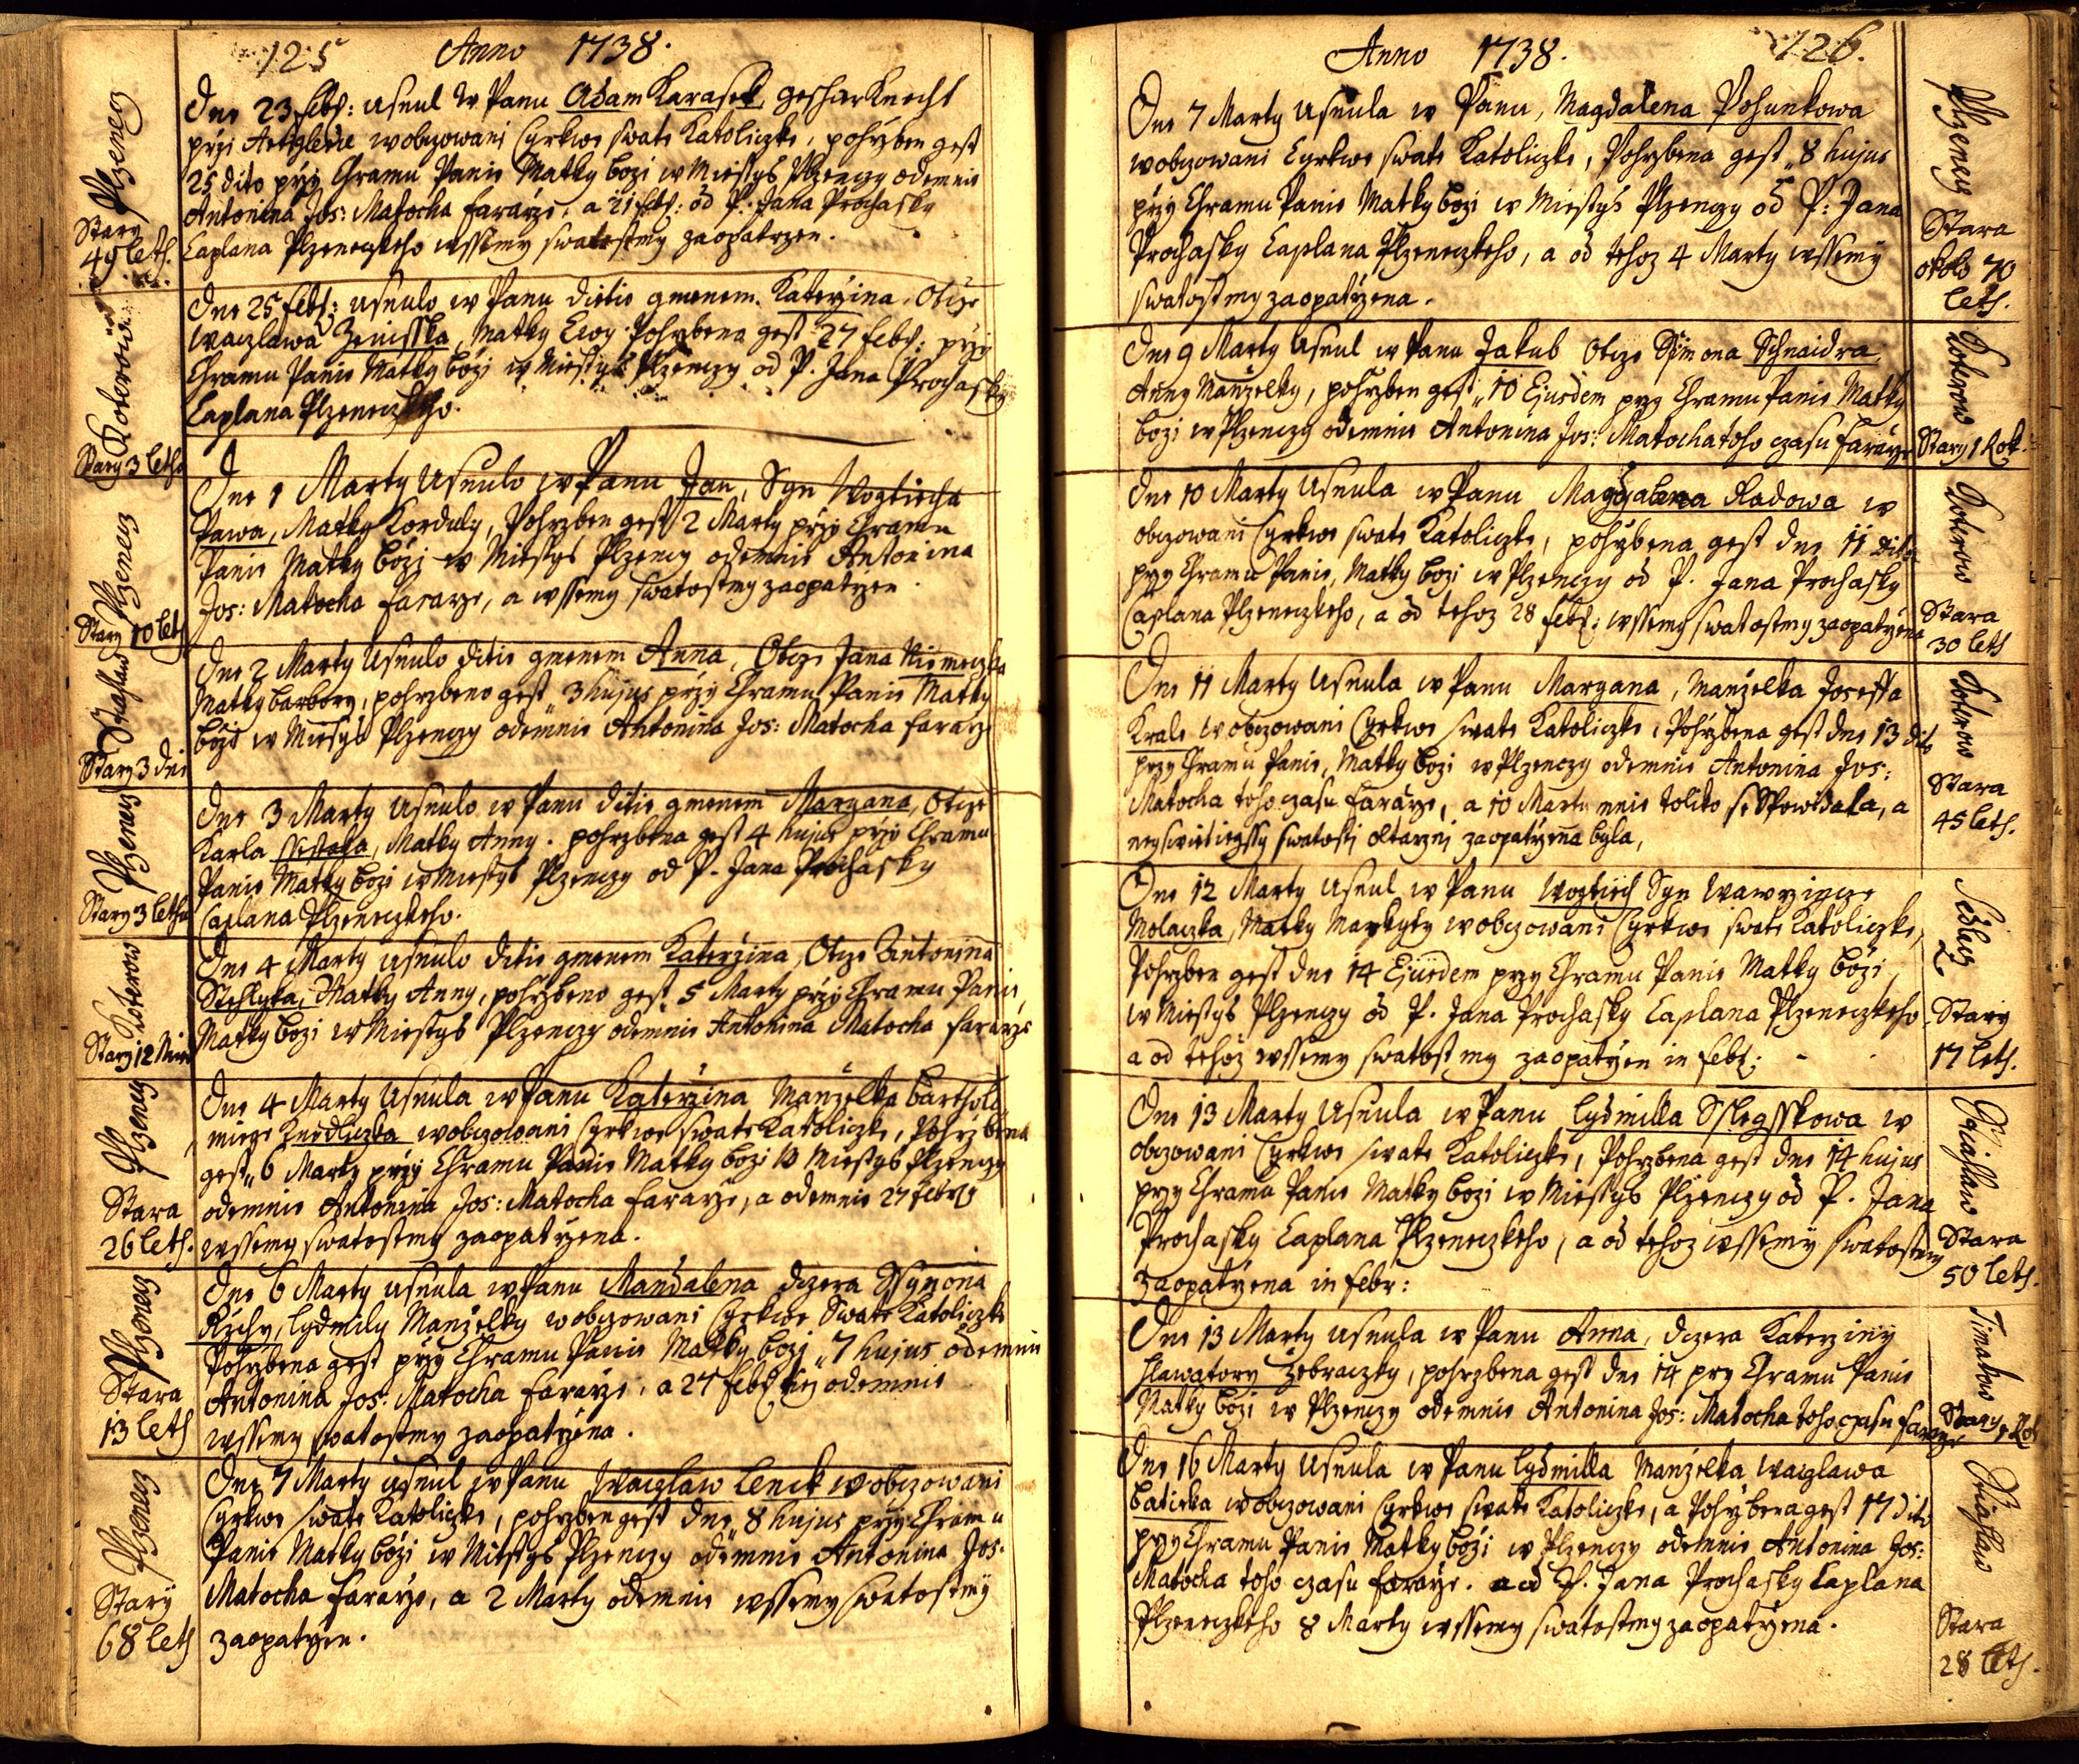 125 Anno 1738.
Plzenecz
Stary
49 leth.
Dne 23 febr: usnul w Panu Adam Karasek, geschirknecht
przi Artylerie wobczowani Cyrkwe swate Katoliczke, pohrzben gest
25 dito przy Chramu Panie Matky bozi w Miestys Plzenczy odemnie
Antonina Jos: Matocha Fararze, a 21 febr: od P. Jana Prochasky
Caplana Plzeneczkeho wssemy swatostmy zaopatrzen.
Koterow
Stary 3 leth
Dne 25 febr: usnulo w Panu ditie gmenem Katerzina, Otcze
Waczlawa Zenisska, Matky Ewy. Pohrzbena gest 27 febr: przy
Chramu Panie Matky bozi w Miestys Plzenczy od P. Jana Prochasky
Caplana Plzeneczkeho.
Plzenecz
Stary 10 leth
Dne 1 Marty Usnulo w Panu Jan, Syn Wogtiecha
Pawa, Matky Korduly, Pohrzben gest 2 Marty przy Chramu
Panie Matky bozi w Miestys Plzenczy odemnie Antonina
Jos: Matocha Fararze, a wssemy swatostmy zaopatrzen.
Stary 3 dni
Dne 2 Marty Usnulo ditie gmenem Anna, Otcze Jana Niemeczka
Matky Barbory, pohrzbeno gest 3 hujus przy Chramu Panie Matky
bozi w Miestys Plzenczy odemnie Antonina Jos: Matocha Fararze
Plzenecz
Stary 3 leth
Dne 3 Marty usnulo w Panu ditie gmenem Maryana, Otcze
Karla Ssestaka, Matky Anny. pohrzbena gest 4 hujus przy Chramu
Panie Matky bozi w Miestys Plzenczy od P. Jana Prochasky
Caplana Plzeneczkeho.
Koterow
Stary 12 Nied
Dne 4 Marty usnulo ditie gmenem Katerzina, Otcze Antonina
Stehlyka, Matky Anny, pohrzbeno gest 5 Marty przy Chramu Panie,
Matky bozi w Miestys Plzenczy odemnie Antonina Matocha Fararze
Plzenecz
Stara
26 leth.
Dne 4 Marty Usnula w Panu Katerzina Manzelka Bartholo
miege Knedliczka wobczowani Cyrkwe swate Katoliczke, Pohrzbena
gest 6 Marty przy Chramu Panie Matky bozi W Miestys Plzenczy
odemnie Antonina Jos: Matocha Fararze, a odemnie 27 febry
wssemy swatostmy zaopatrzena.
Plzenecz
Stara
13 leth
Dne 6 Marty usnula w Panu Mandalena dczera Ssymona
Rychy, Lydmily Manzelky wobczowani Cyrkwe Swate Katoliczke
Pohrzbena gest przy Chramu Panie Matky bozj 7 hujus odemnie
Antonina Jos: Matocha Fararze, a 27 febr tiez odemnie
wssemy swatostmy zaopatrzena.
Plzenecz
Stary
68 leth
Dne 7 Marty usnul w Panu Waczlaw Lenck wobczowani
Cyrkwe swate Katoliczke, pohrzben gest dne 8 hujus przy Chramu
Panie Matky bozi w Miestys Plzenczy odemnie Antonina Jos:
Matocha Fararze, a 2 Marty odemnie wssemy swatostmy
zaopatrzen.
Anno 1738. 126.
Dne 7 Marty Usnula w Panu, Magdalena Pohunkowa
wobczowani Cyrkwe swate Katoliczke, Pohrzbena gest 8 hujus
przy Chramu Panie Matky bozi w Miestys Plzenczy od P: Jana
Prochasky Caplana Plzeneczkeho, a od tehoz 4 Marty wssemy
swatostmy zaopatrzena.
Plzenecz
Stara
okolo 70
leth.
Dne 9 Marty Usnul w Panu Jakub Otcze Symona Schnaidra
Anny Manzelky, pohrzben gest 10 Ejusdem przy Chramu Panie Matky
bozi w Plzenczy odemnie Antonina Jos: Matocha toho czasu Fararze
Koterow
Stary 1 Rok.
Dne 10 Marty Usnula w Panu Magdalena Radowa w
obczowani Cyrkwe swate Katoliczke, pohrzbena gest dne 11 dito
przy Chramu Panie, Matky bozi w Plzenczy od P. Jana Prochasky
Caplana Plzeneczkeho, a od tehoz 28 febr: wssemy swatostmy zaopatrzena
Koterow
Stara
30 leth
Dne 11 Marty Usnula w Panu Maryana, Manzelka Joseffa
Krale wobczowani Cyrkwe swate Katoliczke, Pohrzbena gest dne 13 dito
przy Chramu Panie, Matky bozi w Plzenczy odemnie Antonina Jos:
Matocha toho czasu Fararze, a 10 Marty mnie toliko se Spowidala, a
neyswietieyssy swatosti oltarzni zaopatrzena byla,
Koterow
Stara
45 leth.
Dne 12 Marty Usnul w Panu Wogtiech Syn Wawrzincze
Molaczka, Matky Markyty wobczowani Cyrkwe swate Katoliczke,
Pohrzben gest dne 14 Ejusdem przy Chramu Panie Matky bozi,
w Miestys Plzenczy od P. Jana Prochasky Caplana Plzeneczkeho
a od tehoz wssemy swatostmy zaopatrzen in febr:
Sedlecz
Stary
17 leth.
Dne 13 Marty Usnula w Panu Lydmilla Sslegsskowa w
obczowani Cyrkwe swate Katoliczke, Pohrzbena gest dne 14 hujus
przy Chramu Panie Matky bozi w Miestys Plzenczy od P. Jana
Prochasky Caplana Plzeneczkeho, a od tehoz wssemy swatostmy
zaopatrzena in febr:
Stara
50 leth.
Dne 13 Marty usnula w Panu Anna, dczera Katerziny
Hlawatory Zebraczky, pohrzbena gest dne 14 przy Chramu Panie
Matky bozi w Plzenczy odemnie Antonina Jos: Matocha toho czasu Fararze
Timakow
Stary 1 Rok
Dne 16 Marty Usnula w Panu Lydmilla Manzelka Waczlawa
Batieka wobczowani Cyrkwe swate Katoliczke, a Pohrzbena gest 17 dito
przy Chramu Panie Matky bozi w Plzenczy odemnie Antonina Jos:
Matocha toho czasu Fararze. a od P. Jana Prochasky Caplana
Plzeneczkeho 8 Marty wssemy swatostmy zaopatrzena.
Stara
28 leth.